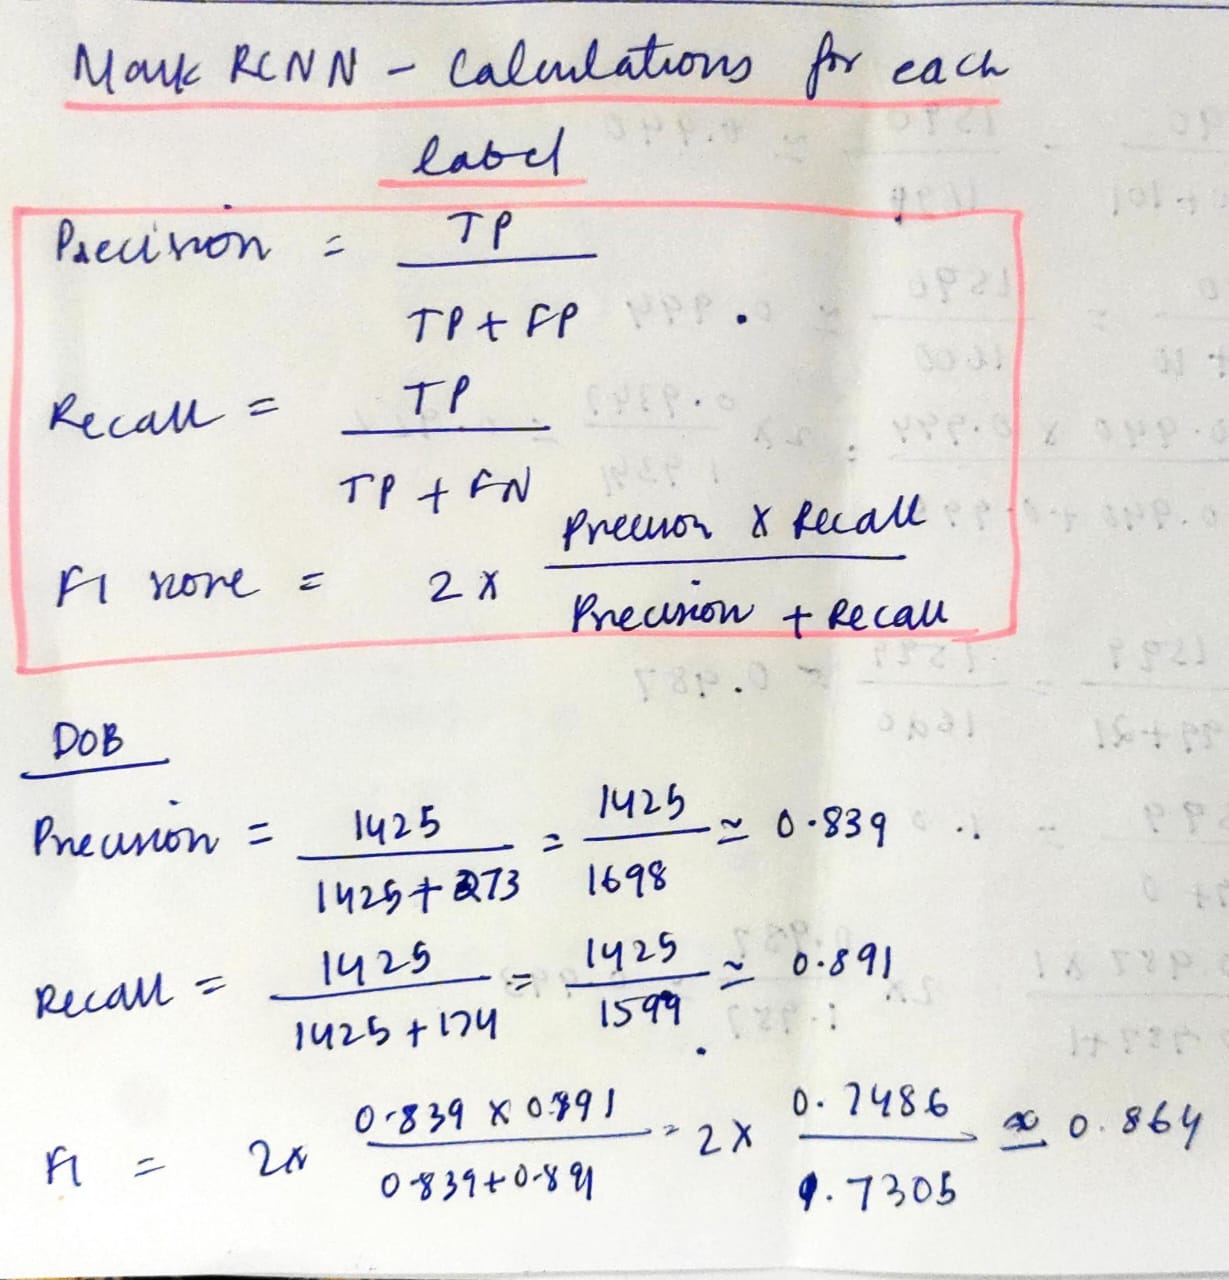 Mask RCNN - Calculations for each
label
Precision = TP / TP + FP
Recall = TP / TP + FN
F1 score = 2 x Precision x Recall / Precision + Recall
DOB
Precision = 1425 / 1425 + 273 = 1425 / 1698 ≃ 0.839
Recall = 1425 / 1425 + 174 = 1425 / 1599 ≃ 0.891
F1 = 2x 0.839 x 0.891 / 0.839 + 0.891 = 2 x 0.7486 / 1.7305 ≃ 0.864